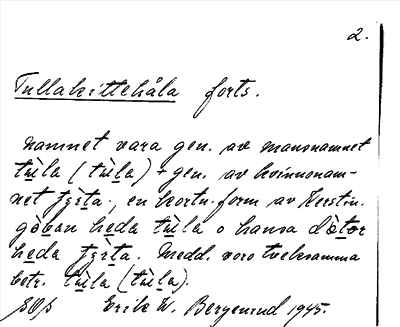 2.
Tullakittehåla forts.
namnet vara gen. av mansnamnet
tùla (tùla) + gen. av kvinnonam-
net çı̀ta, en kortn. form av Kerstin.
gòban heda tùla o hansa dòtər
heda çı̀ta. Medd. voro tveksamma
betr. tùla (tùla).
Erik W. Bergenrud 1945.